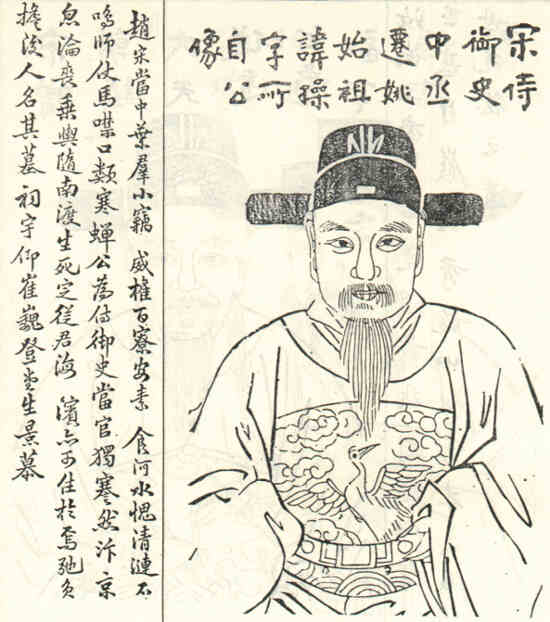 宋侍
御史
中丞
遷姚
始祖
諱操
字所
自公
像
趙宋當中葉羣小竊威權百寮安素食河水愧清漣不
鳴師仗馬噤口類寒蟬公為侍御史當官獨蹇然汴京
忽淪喪乘輿隨南渡生死定從君海濱亦可住於焉弛負
擔後人名其墓祠宇仰崔巍登堂生景慕